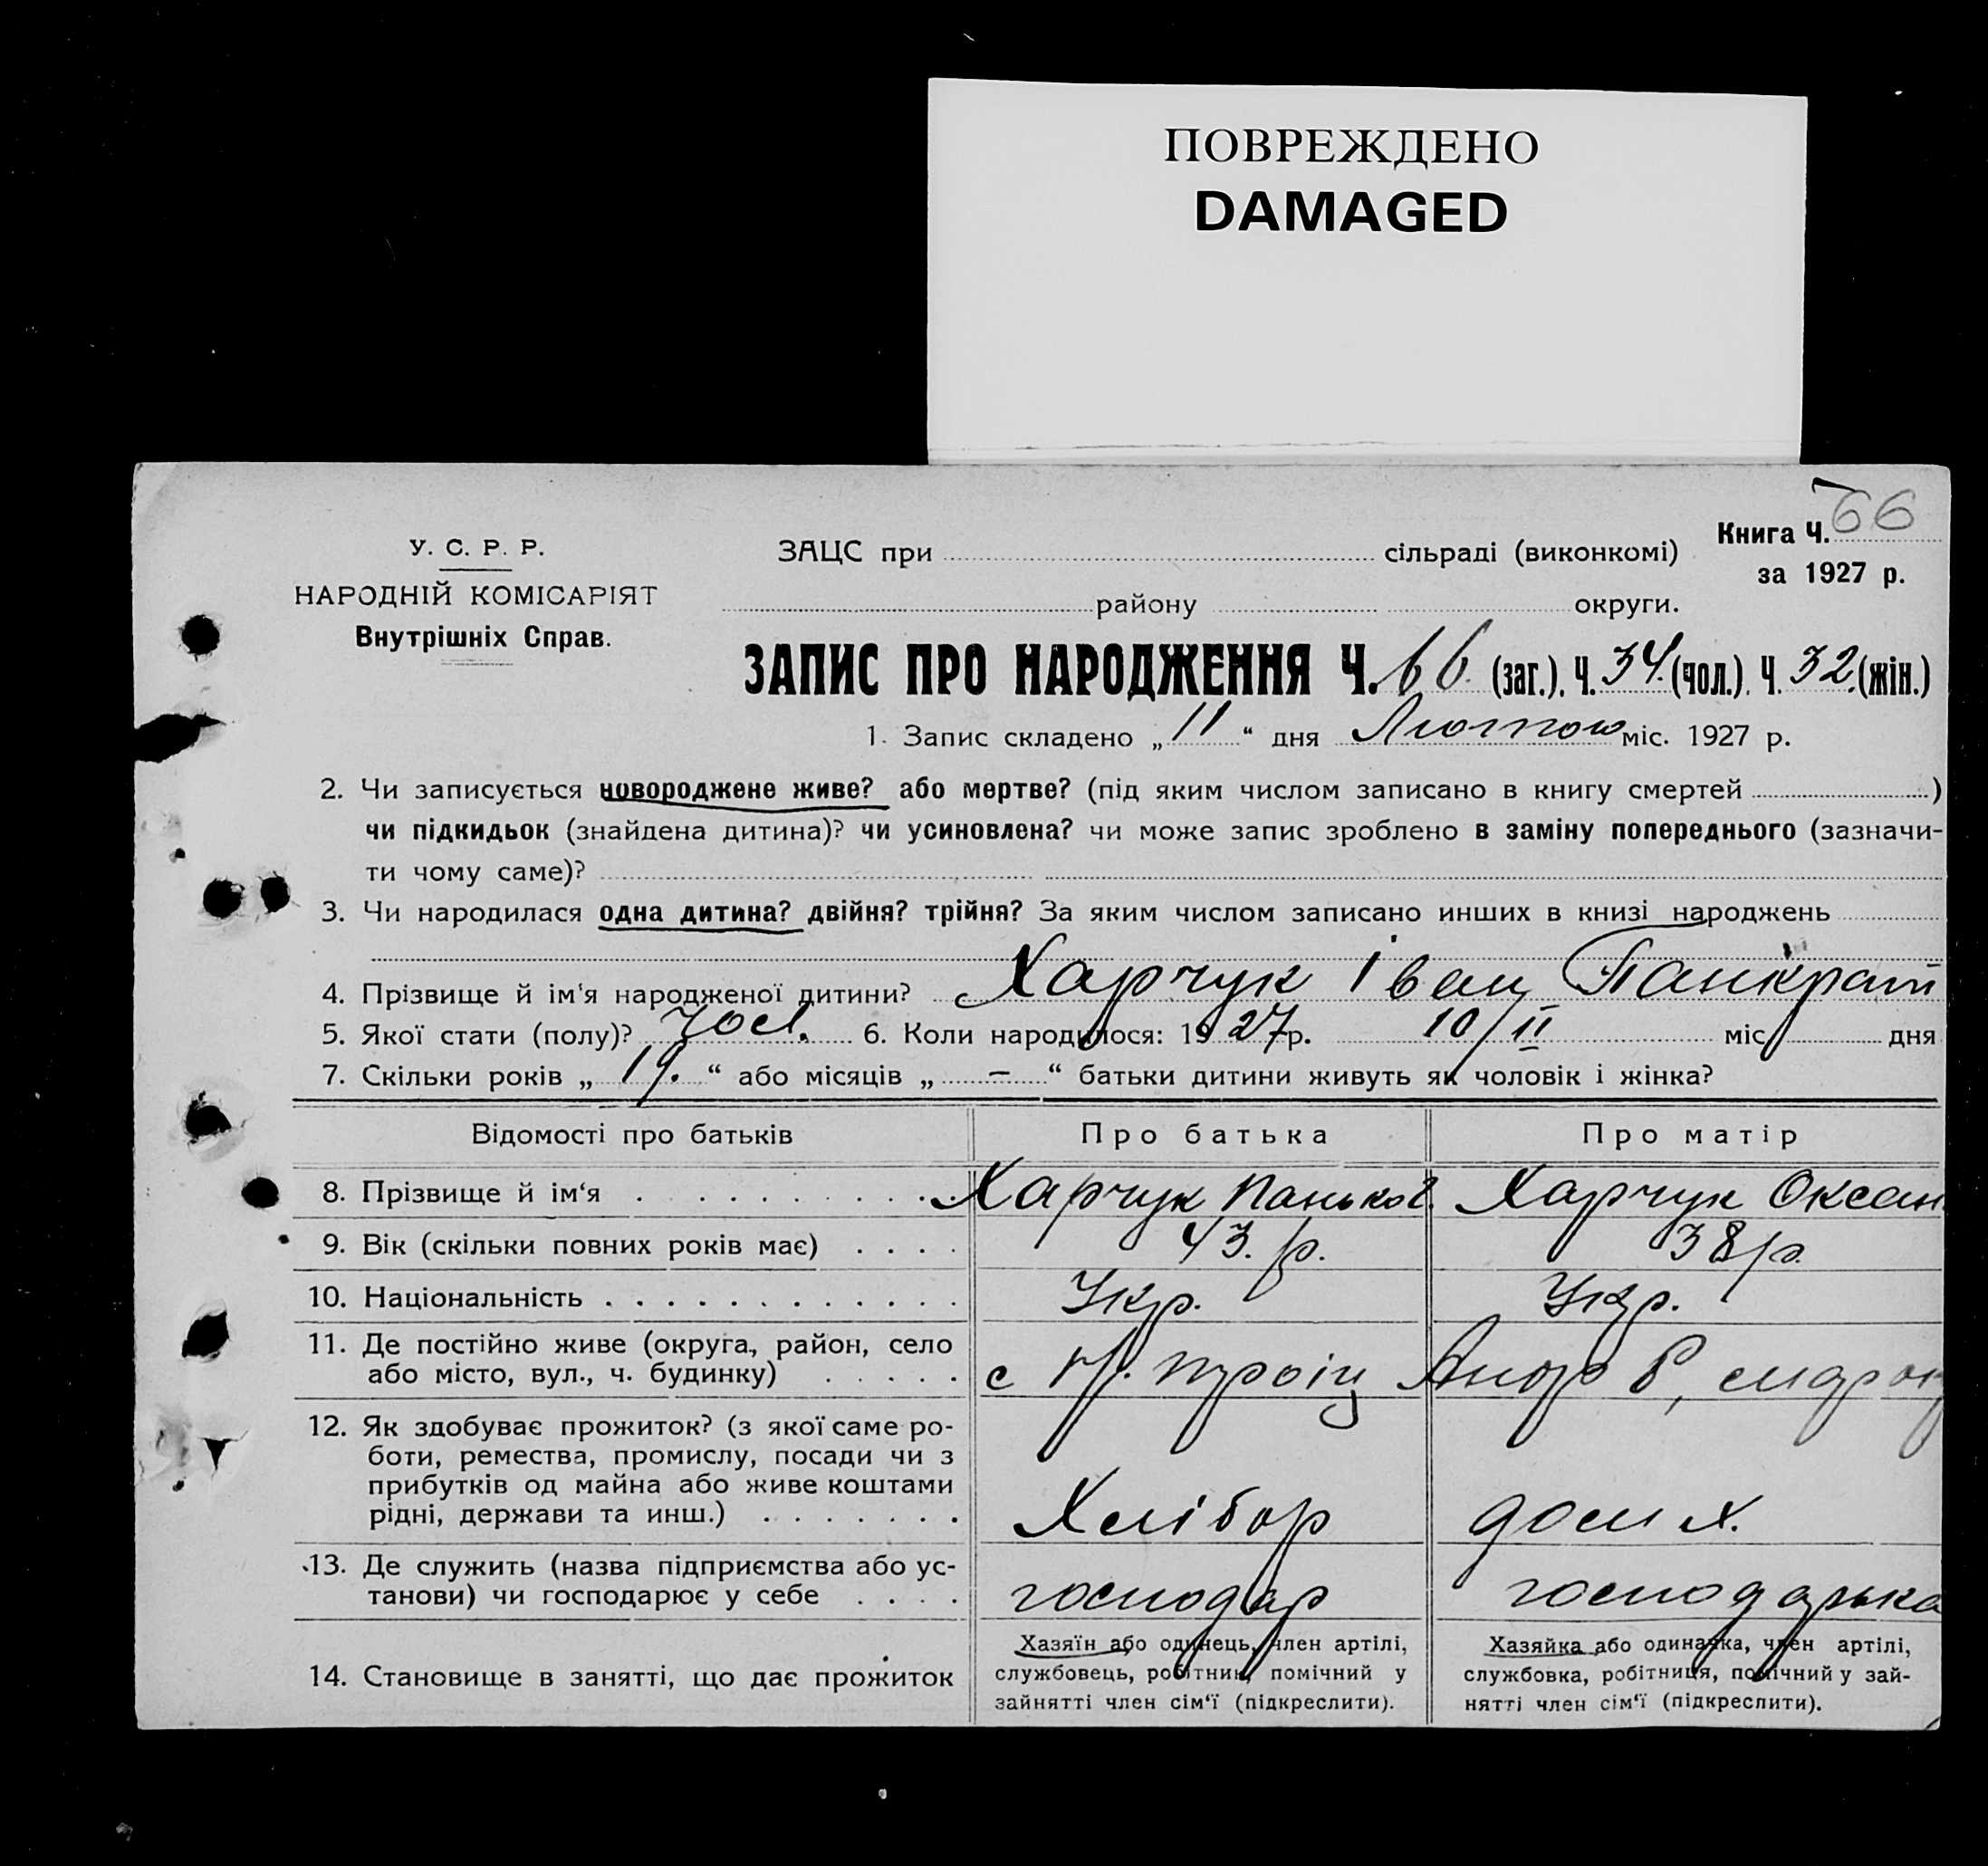 ПОВРЕЖДЕНО
DAMAGED
У. С. Р. Р.
НАРОДНІЙ КОМІСАРІЯТ
Внутрішніх Справ.
ЗАЦС при сільраді (виконкомі)
Книга Ч. 66
за 1927 р.
району округи.
ЗАПИС ПРО НАРОДЖЕННЯ Ч. 66 (заг.). Ч. 34 (чол.). Ч. 32 (жін.)
1. Запис складено „11“ дня Лютого міс. 1927 р.
2. Чи записується новороджене живе? або мертве? (під яким числом записано в книгу смертей )
чи підкидьок (знайдена дитина)? чи усиновлена? чи може запис зроблено в заміну попереднього (зазначи-
ти чому саме)?
3. Чи народилася одна дитина? двійня? трійня? За яким числом записано инших в книзі народжень
4. Прізвище й ім'я народженої дитини? Харчук Іван Панкрат
5. Якої стати (полу)? чол. 6. Коли народилося: 1927 р. 10/II міс. дня
7. Скільки років „19.“ або місяців „—“ батьки дитини живуть як чоловік і жінка?
Відомості про батьків Про батька Про матір
8. Прізвище й ім'я Харчук Харчук Оксан
9. Вік (скільки повних років має) 43. р. 38 р.
10. Національність Укр. Укр.
11. Де постійно живе (округа, район, село
або місто, вул., ч. будинку) с
12. Як здобуває прожиток? (з якої саме ро-
боти, ремества, промислу, посади чи з
прибутків од майна або живе коштами
рідні, держави та инш.) Хлібор дом х.
13. Де служить (назва підприємства або ус-
танови) чи господарює у себе господар господарька
14. Становище в занятті, що дає прожиток
Хазяїн або одинець, член артілі,
службовець, робітник, помічний у
зайнятті член сім'ї (підкреслити).
Хазяйка або одиначка, член артілі,
службовка, робітниця, помічний у зай-
нятті член сім'ї (підкреслити).